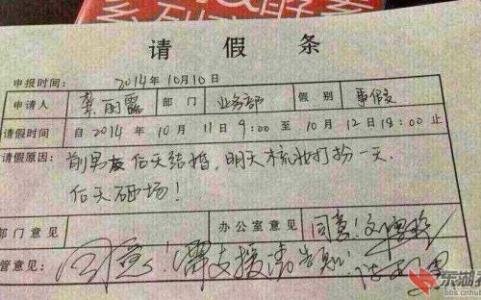 系列
请假条
申报时间: 2014年10月10日
申请人 龚丽露 部门 业务部 假别 事假
请假时间 自2014年10月11日9:00至10月12日18:00止
请假原因: 前男友后天结婚,明天梳妆打扮一天.
后天砸场!
部门意见 办公室意见 同意!
管意见: 同意!需支援请告知!
东湖
bbs.cnhub